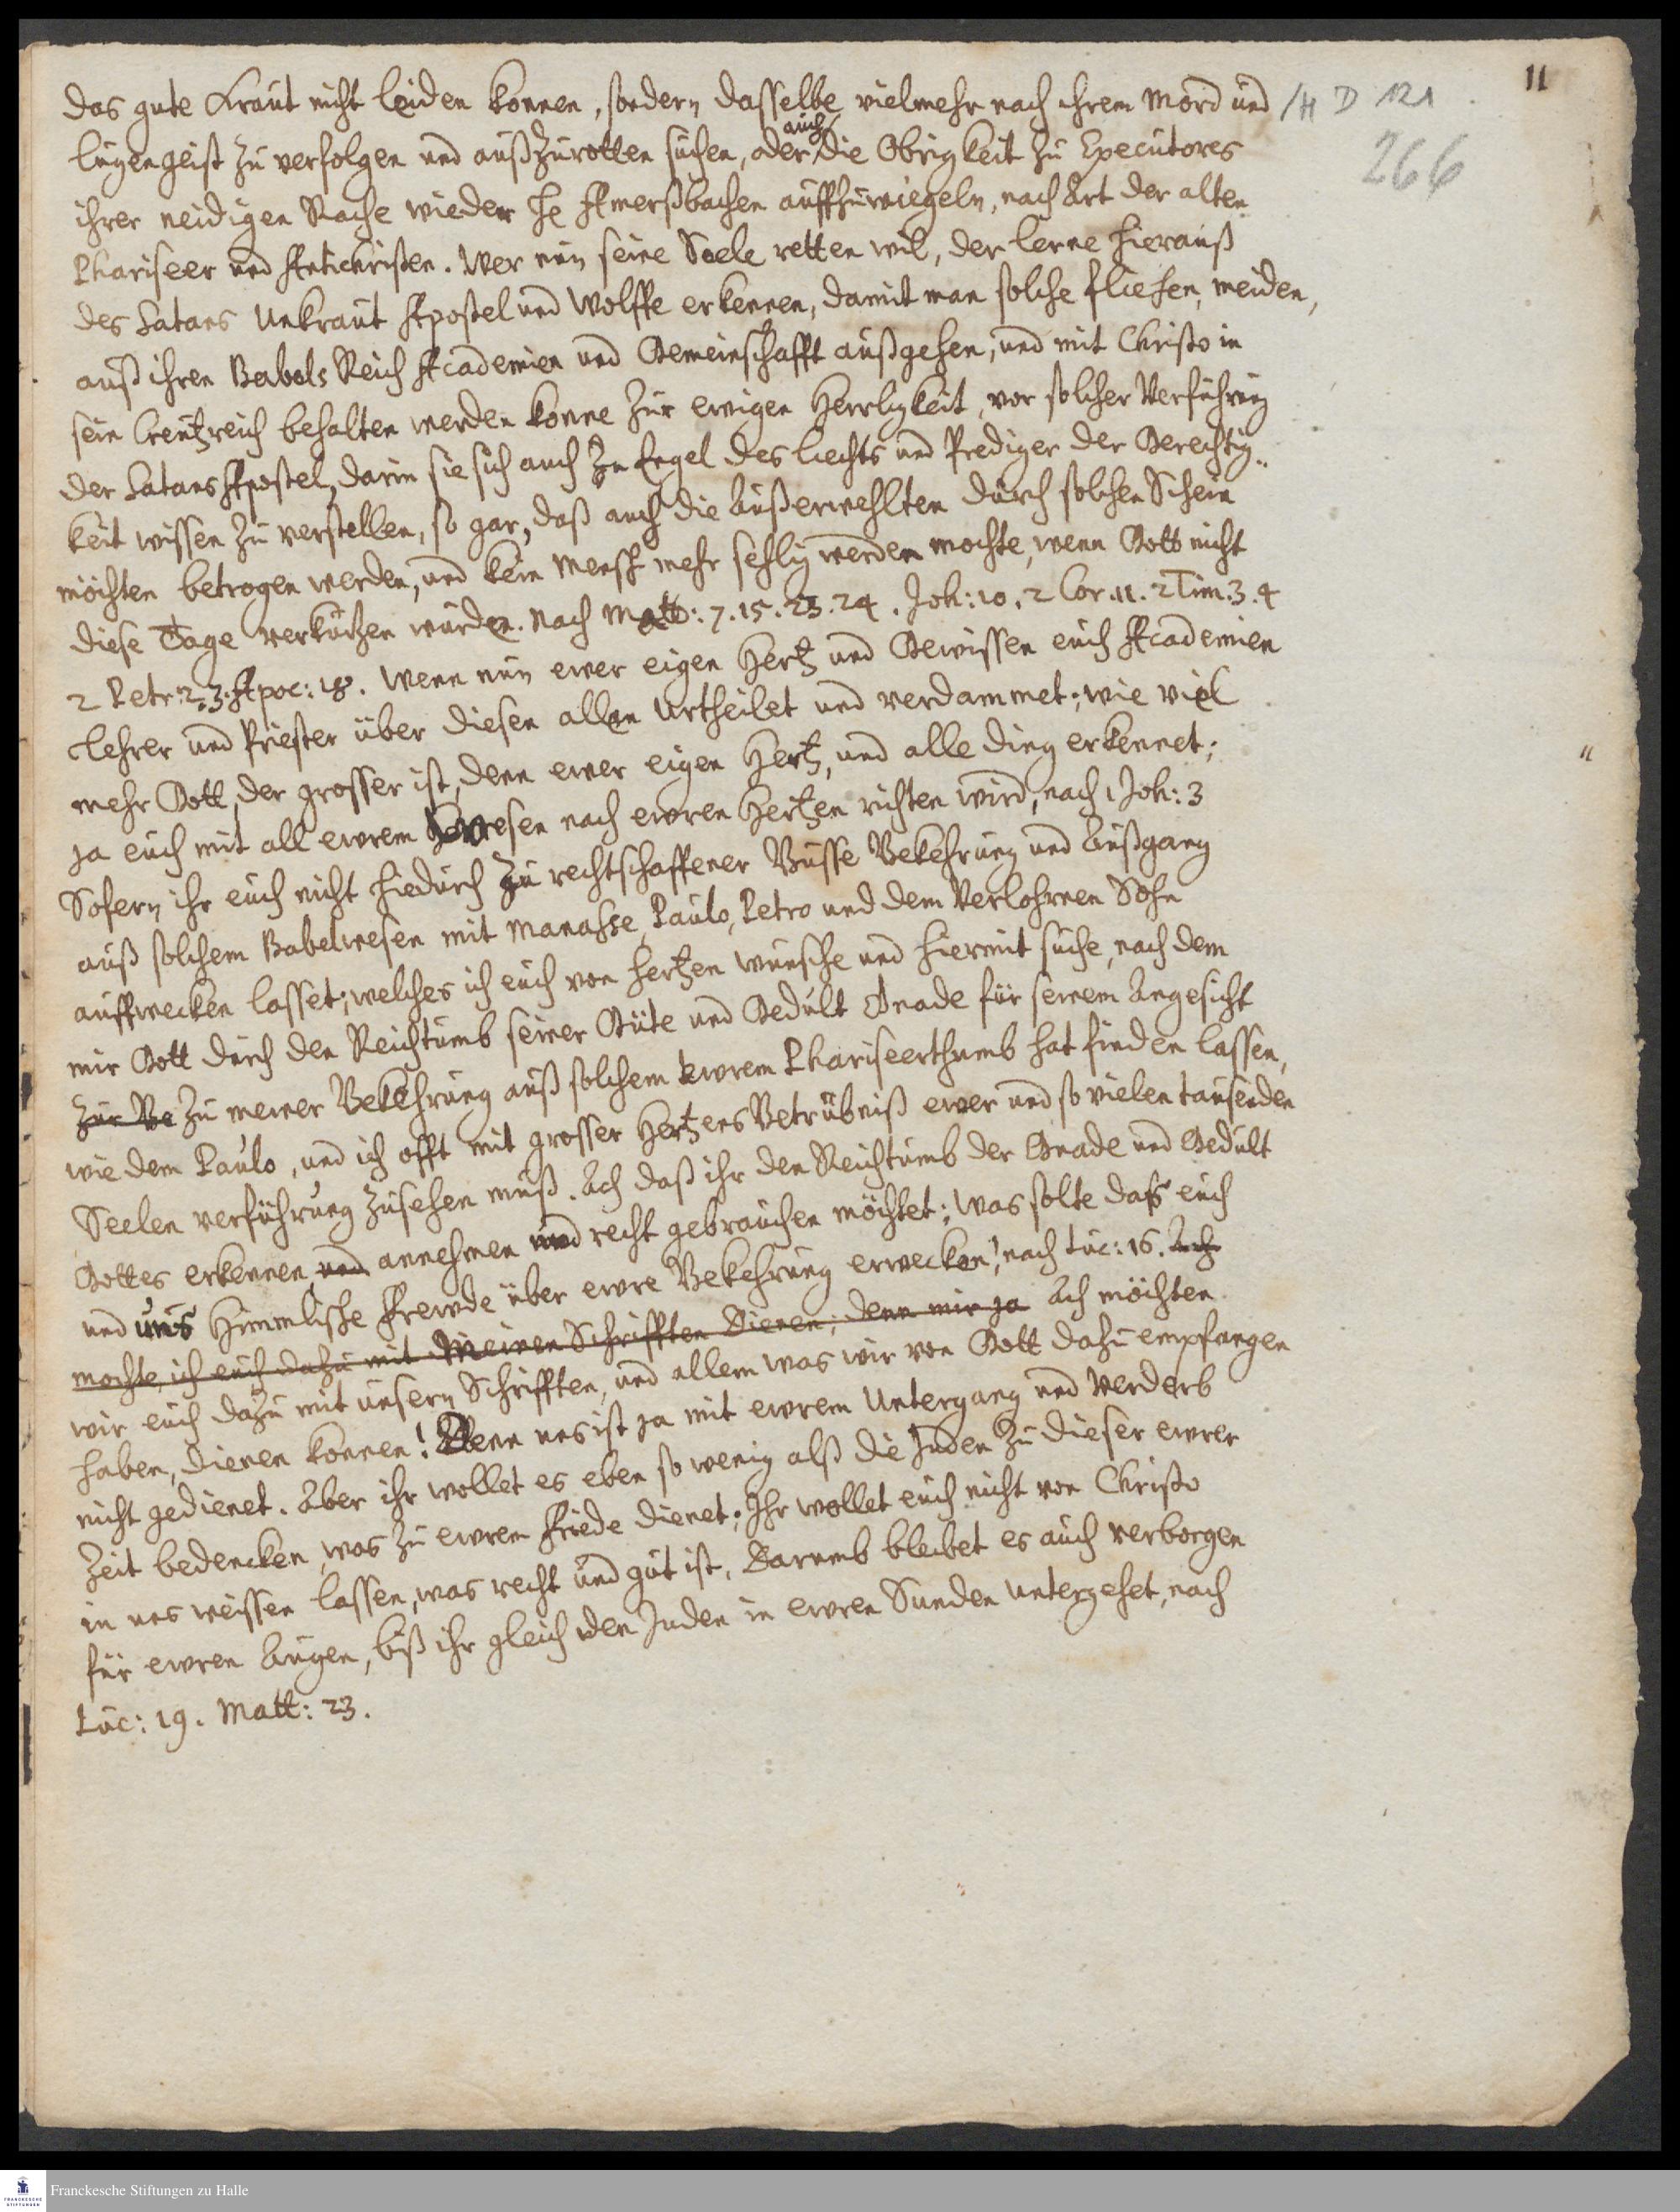 11
/H D 121
266
das gute Kraut nicht leiden konnen, sondern dasselbe vielmehr nach ihrem Mord und
lugengeist zu verfolgen und außzurotten suchen, oder auch die Obrigkeit zu Executores
ihrer neidigen Rache wieder He Amerßbachen auffzuwiegeln, nach Art der alten
Phariseer und Antichristen. Wer nun seine Seele retten wil, der lerne hierauß
des Satans Unkraut Apostel und Wolffe erkennen, damit man solche fliehen, meiden,
auß ihren Babels Reich Academien und Gemeinschafft außgehen, und mit Christo in
sein Creutzreich behalten werden konne zur ewigen Herrligkeit, vor solcher Verfuhrung
der Satans Apostel, darin sie sich auch zu Engel des liechts und Prediger der Gerechtig-
keit wissen zu verstellen, so gar, daß auch die Außerwehlten durch solchen Schein
möchten betrogen werden, und kein Mensch mehr sehlig werden mochte, wenn Gott nicht
diese Tage verkürtzen würde. Nach Matt: 7. 15. 23. 24. Joh: 10. 2 Cor. 11. 2 Tim. 3. 4
2 Petr: 2. 3. Apoc: 18. Wenn nun ewer eigen Hertz und Gewissen euch Academien
Lehrer und Priester über diesen allen Urtheilet und verdammet; wie viel
mehr Gott, der grosser ist, denn ewer eigen Hertz, und alle ding erkennet;
ja euch mit all ewrem wesen nach ewren Hertzen richten wird, nach 1 Joh: 3
Sofern ihr euch nicht hiedurch zu rechtschaffener Busse Bekehrung und Außgang
auß solchem Babelwesen mit Manasse, Paulo, Petro und dem Verlohrnen Sohn
auffwecken lasset; welches ich euch von hertzen wunsche und hiermit suche, nach dem
mir Gott durch den Reichtumb seiner Güte und Gedult Gnade für seinem Angesicht
zur Be zu meiner Bekehrung auß solchem ewrem Phariseerthumb hat finden lassen,
wie dem Paulo, und ich offt mit grosser Hertzens Betrübniß ewer und so vielen tausenden
Seelen verführung zusehen muß. Ach daß ihr den Reichtumb der Gnade und Gedult
Gottes erkennen, und annehmen und recht gebrauchen möchtet; was solte daß euch
und uns Himmlische Frewde über ewre Bekehrung erwecken! nach Luc: 15. Ach
mochte ich euch dazu mit Meinen Schrifften Dienen; denn mir ja Ach möchten
wir euch dazu mit unsern Schrifften, und allem was wir von Gott dazu empfangen
haben, dienen konnen! Denn uns ist ja mit ewrem Untergang und Verderb
nicht gedienet. Aber ihr wollet es eben so wenig alß die Juden zu dieser ewrer
Zeit bedencken, was zu ewrem friede dienet; Ihr wollet euch nicht von Christo
in uns weissen lassen, was recht und gut ist, Darumb bleibet es auch verborgen
für ewren Augen, biß ihr gleich den Juden in ewren Sunden untergehet, nach
Luc: 19. Matt: 23.
Franckesche Stiftungen zu Halle